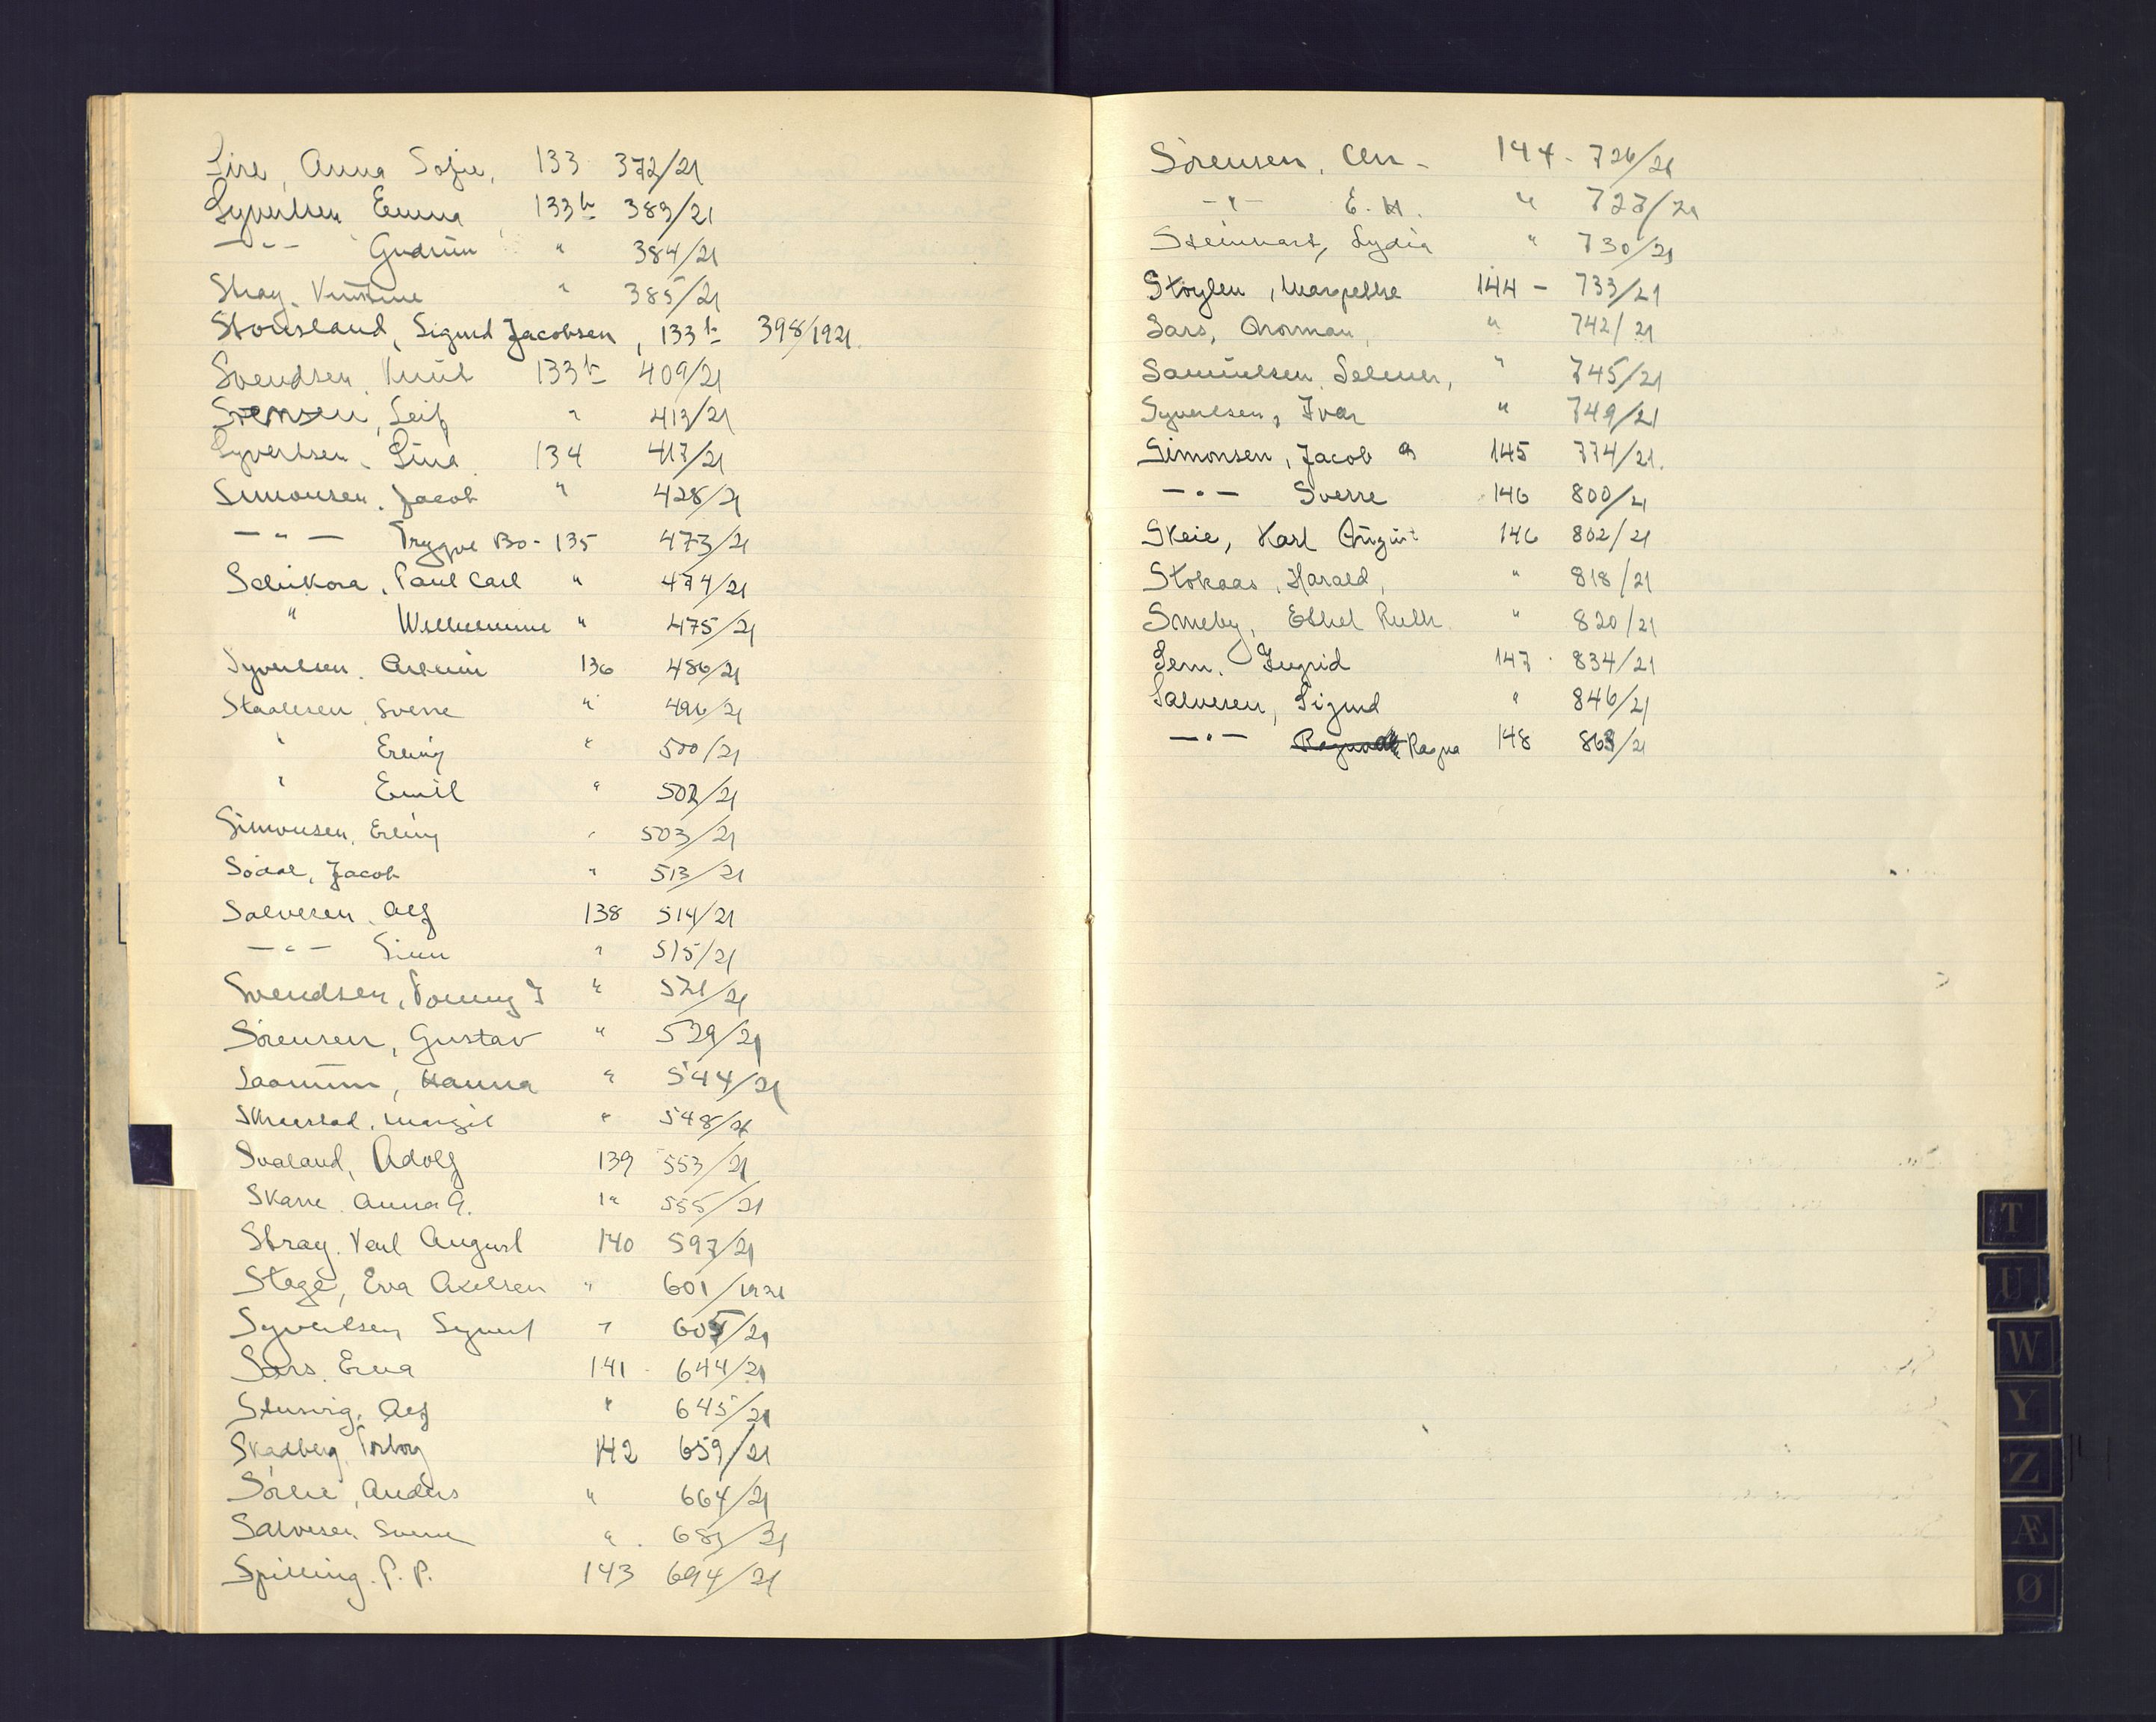 Sire, Anna Sofie, 133 372/21
Syvertsen Emma 133b 383/21
— " — Gudrun " 384/21
Stray, Kristine " 385/21
Stousland, Sigurd Jacobsen, 133b 398/1921.
Svendsen, Knut 133b 409/21
Svensen, Leif " 413/21
Syvertsen, Lina 134 417/21
Simonsen, Jacob " 428/21
— " — Trygve Bo- 135 473/21
Schikora, Paul Carl " 474/21
" Wilhelmine " 475/21
Syvertsen, 136 486/21
Staalesen, Sverre " 496/21
" Erling " 500/21
" Emil " 502/21
Simonsen, Erling " 503/21
Södal, Jacob " 513/21
Salvesen, Alf 138 514/21
— " — " 515/21
Svendsen, " 521/21
Sörensen, Gustav " 529/21
Hanna " 544/21
Margit " 548/21
Svaland, Adolf 139 553/21
Skarre Anna A. 555/21
Stray, Karl August 140 597/21
Stege, Eva Axelsen " 601/1921
Syvertsen, Syvert " 605/21
Sars, Erna 141 644/21
Alf " 645/21
Skadberg, Torborg 142 659/21
Sörlie, Anders " 664/21
Salvesen " 681/21
Spilling, P. P. 143 694/21
Sörensen, 144 - 726/21
— " — E. H. " 727/21
Steinnart, Lydia " 730/21
Stöylen, Margrethe 144 - 733/21
Sars, Norman, " 742/21
Samuelsen, Selmer, " 745/21
Syvertsen, Ivar " 749/21
Simonsen, Jacob 145 774/21.
— " — Sverre 146 800/21
Skeie, Karl August 146 802/21
Stokaas, Harald, " 818/21
Smeby, Ethel Ruth " 820/21
Sem, Ingrid 147 834/21
Salvesen, Sigurd " 846/21
— " — Ragna 148 863/21
T
U
W
Y
Z
Æ
Ø